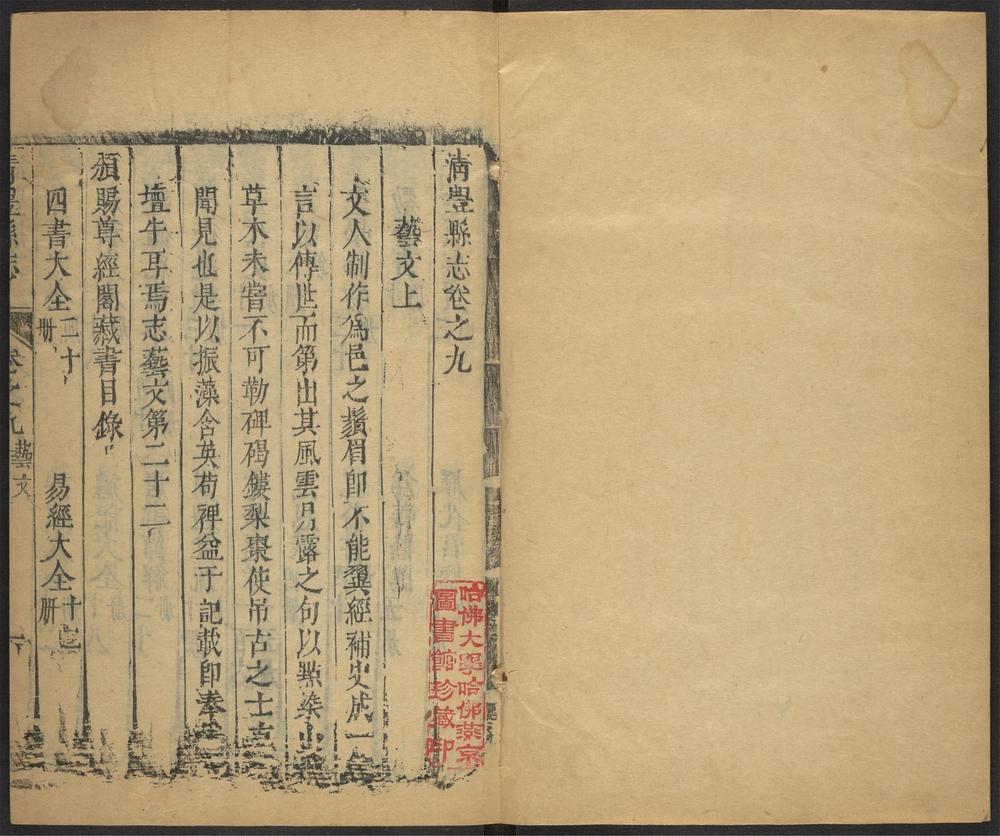 清豐縣志卷之九
藝文上
文人制作爲邑之鬚眉即不能翼經補史成一
言以傳世而第出其風雲月露之句以點染山
草木未嘗不可勒碑碣鏤梨棗使吊古之士
聞見也是以振藻含英苟裨益于記載即奉
壇牛耳焉志藝文第二十二
頒賜尊經閣藏書目錄
四書大全二十冊 易經大全十冊
清豐縣志 卷之九 藝文
哈佛大學哈佛燕京
圖書館珍藏印